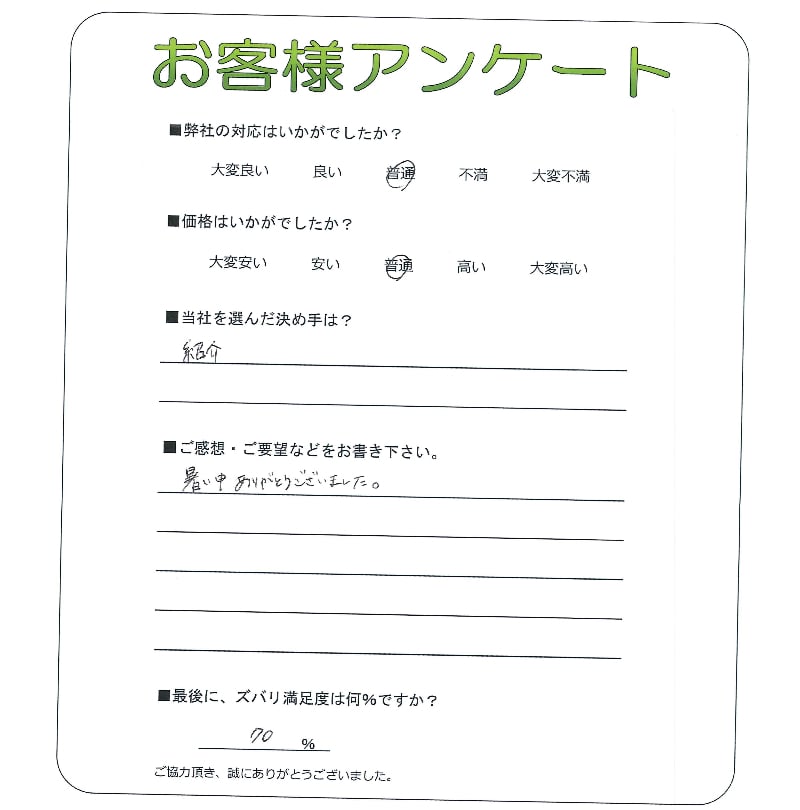 お客様アンケート
■弊社の対応はいかがでしたか？
大変良い 良い 普通 不満 大変不満
■価格はいかがでしたか？
大変安い 安い 普通 高い 大変高い
■当社を選んだ決め手は？
紹介
■ご感想・ご要望などをお書き下さい。
暑い中ありがとうございました。
■最後に、ズバリ満足度は何%ですか？
70 %
ご協力頂き、誠にありがとうございました。